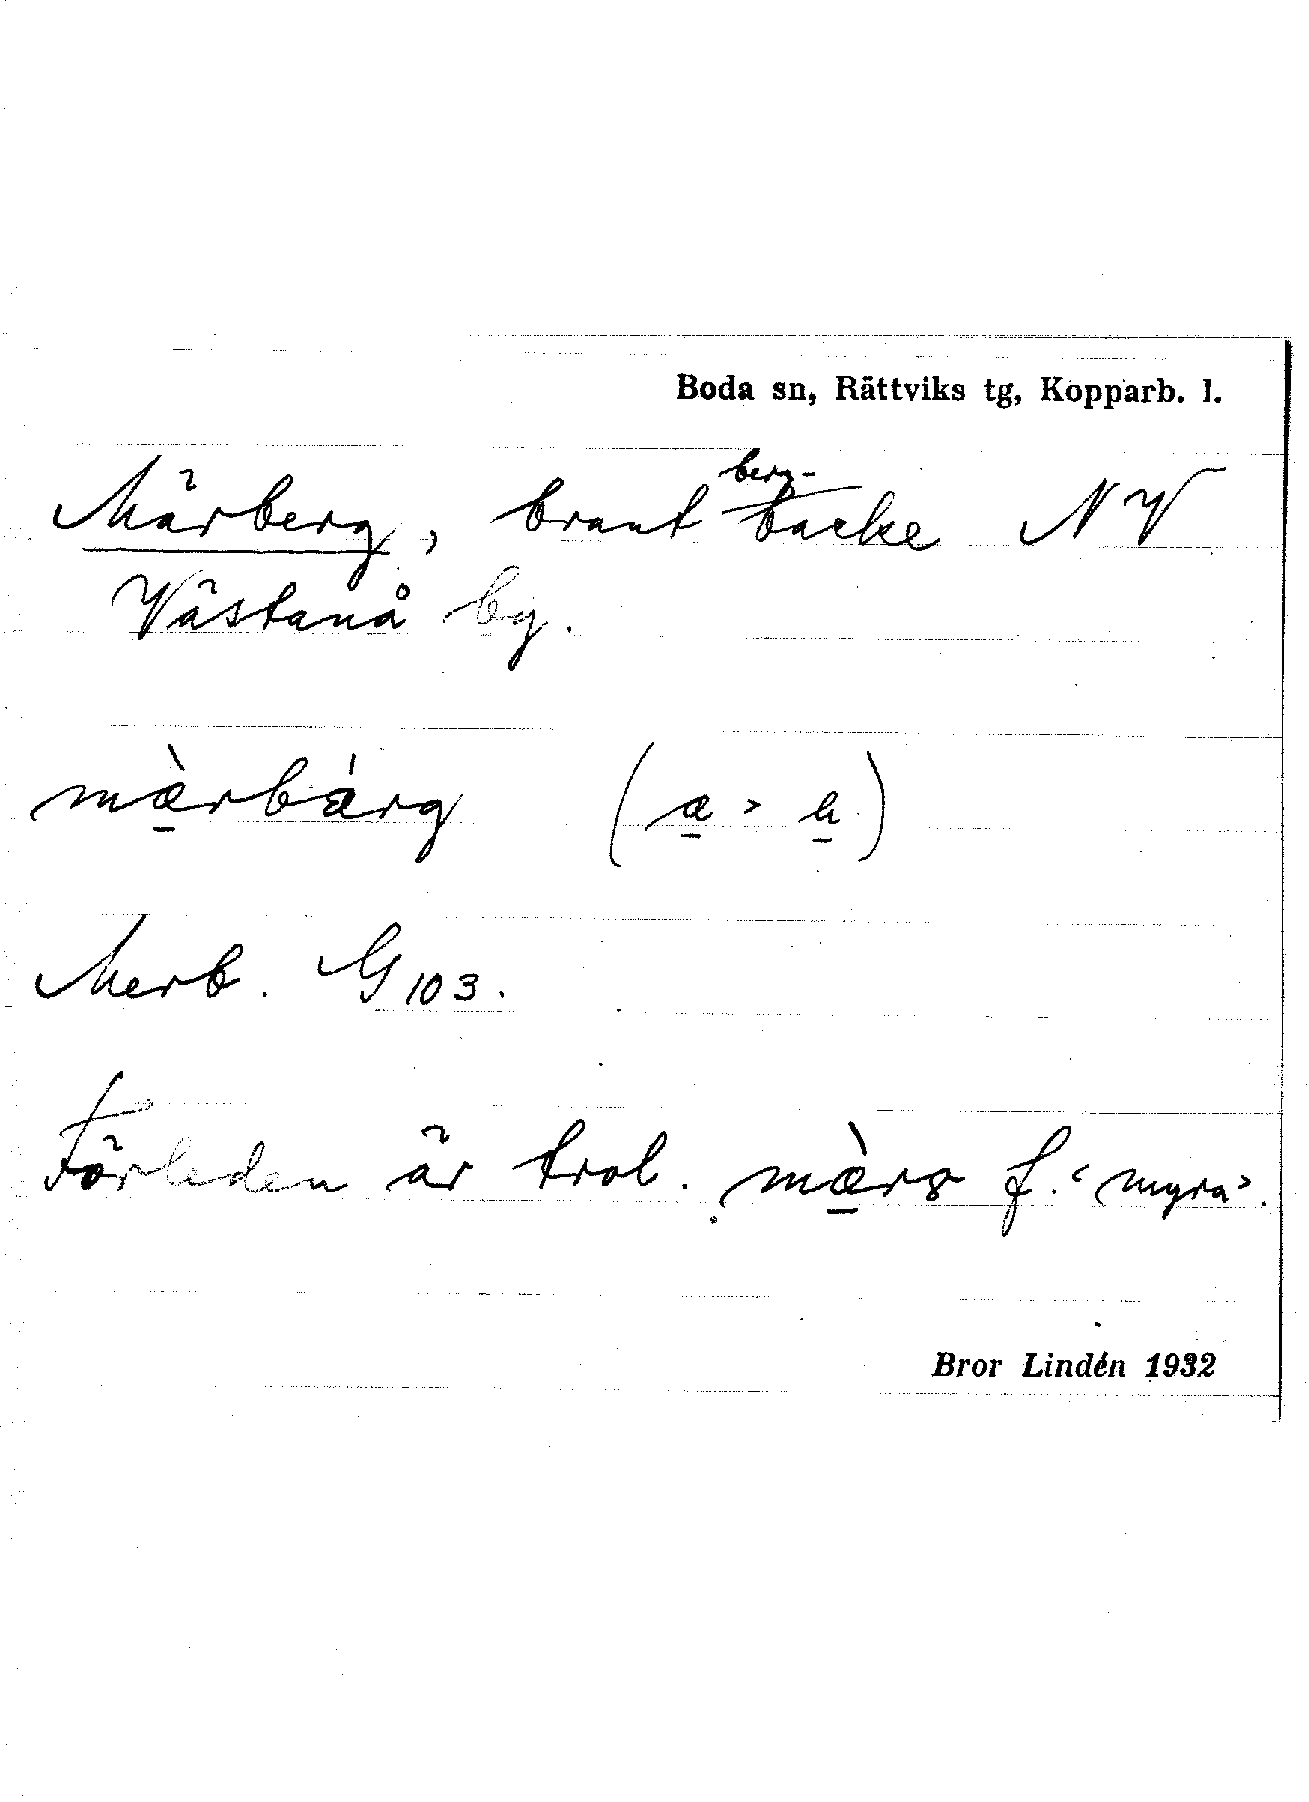 Boda sn, Rättviks tg, Kopparb. l.
Märberg, brant berg-backe NV
Västanå by.
mæ̠̀rbárg (a̠ > a̠)
Merb. G 103.
Förleden är trol. mæ̠̀rs f. ‹myra›.
Bror Lindén 1932